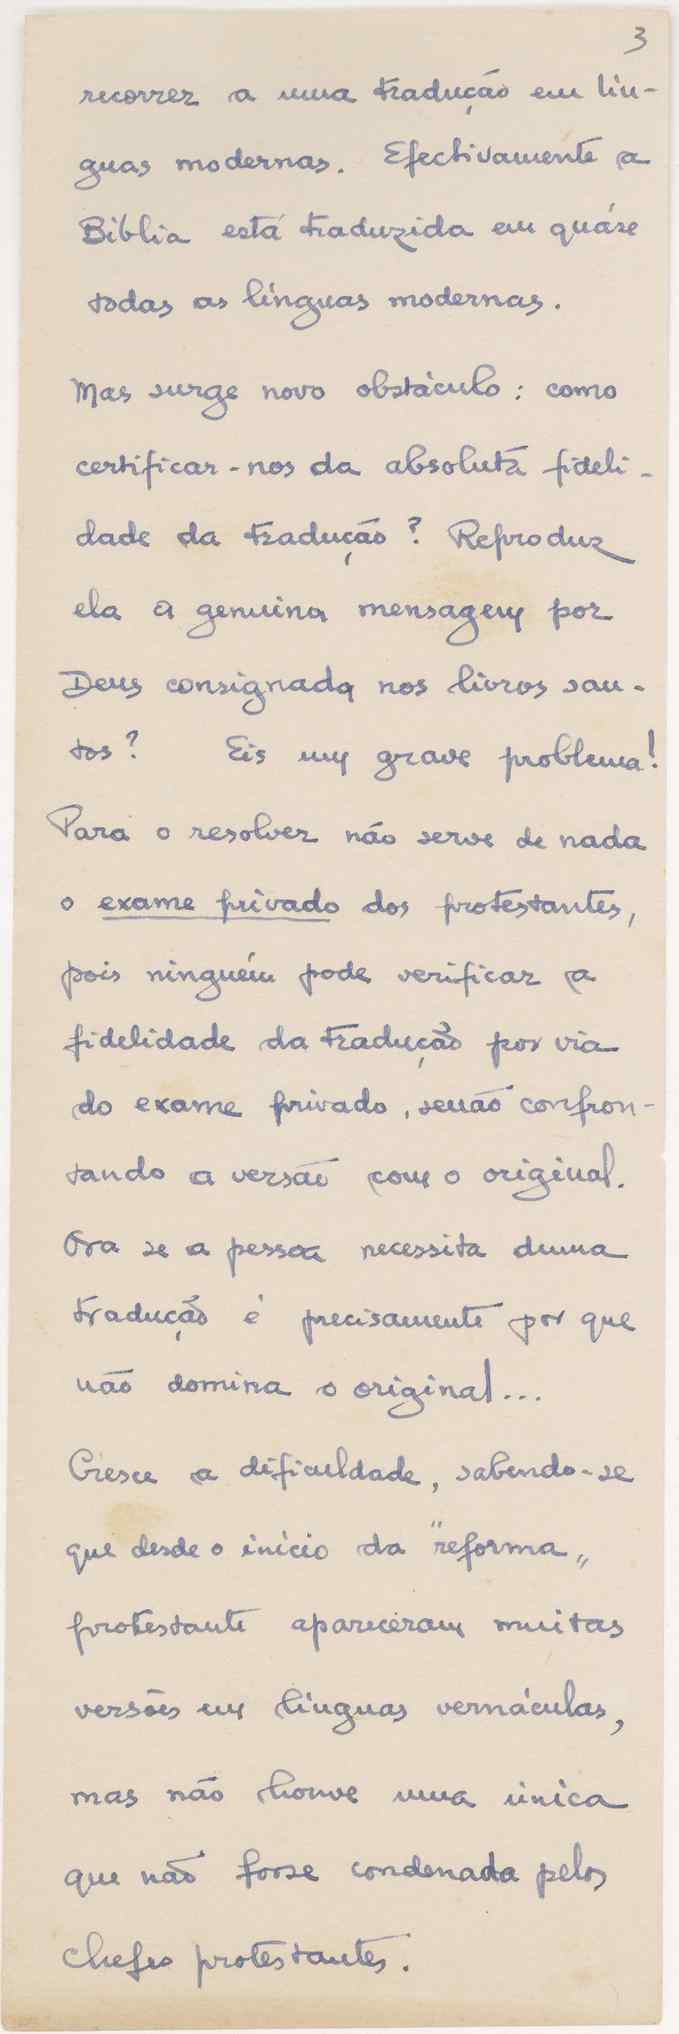 3
recorrer a uma tradução em lín-
guas modernas. Efectivamente a
Bíblia está traduzida em quáse
todas as línguas modernas.
Mas surge novo obstáculo: como
certificar-nos da absoluta fideli-
dade da tradução? Reproduz
ela a genuina mensagem por
Deus consignada nos livros san-
tos? Eis um grave problema!
Para o resolver não serve de nada
o exame privado dos protestantes,
pois ninguém pode verificar a
fidelidade da tradução por via
do exame privado, senão confron-
tando a versão com o original.
Ora se a pessoa necessita duma
tradução é precisamente por que
não domina o original...
Cresce a dificuldade, sabendo-se
que desde o início da "reforma„
protestante apareceram muitas
versões em línguas vernáculas,
mas não houve uma única
que não fosse condenada pelos
chefes protestantes.